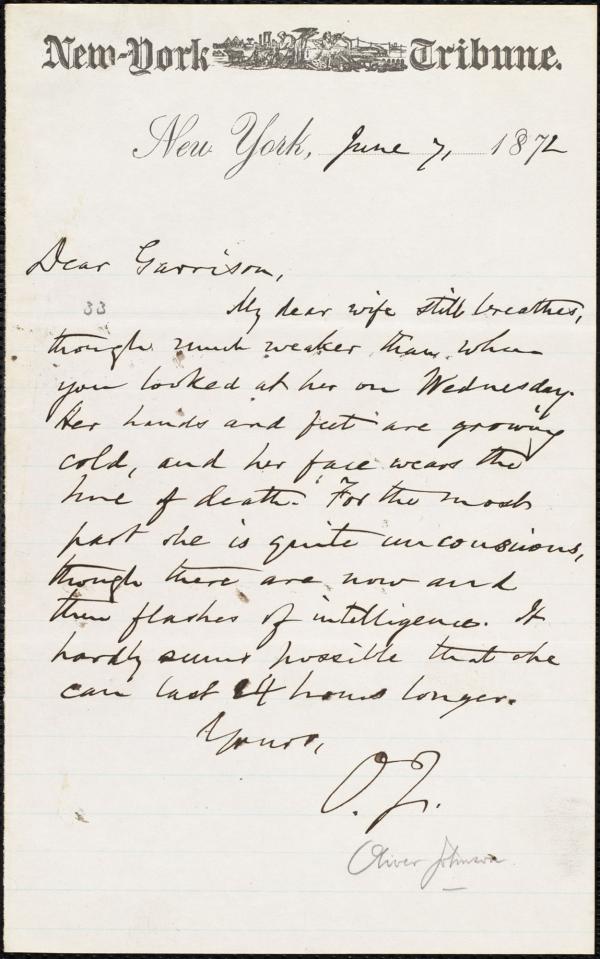 New-York Tribune.
New York, June 7, 1872
Dear Garrison,
33
My dear wife still breathes,
though much weaker than when
you looked at her on Wednesday.
Her hands and feet are growing
cold, and her face wears the
hue of death. For the most
part she is quite unconscious,
though there are now and
then flashes of intelligence. It
hardly seems possible that she
can last 24 hours longer.
Yours,
O. J.
Oliver Johnson